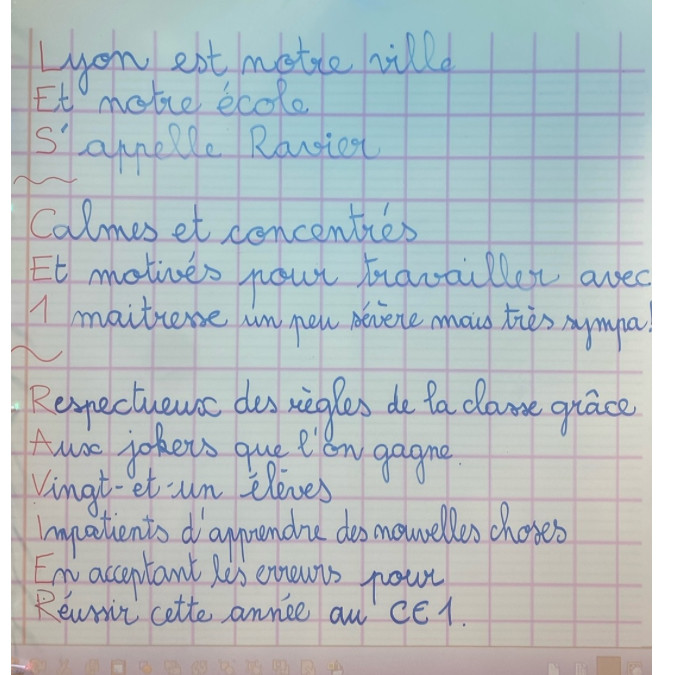 Lyon est notre ville
Et notre école
S'appelle Ravier
Calmes et concentrés
Et motivés pour travailler avec
1 maitresse un peu sévère mais très sympa!
Respectueux des règles de la classe grâce
Aux jokers que l'on gagne.
Vingt-et-un élèves
Impatients d'apprendre des nouvelles choses
En acceptant les erreurs pour
Réussir cette année au CE1.